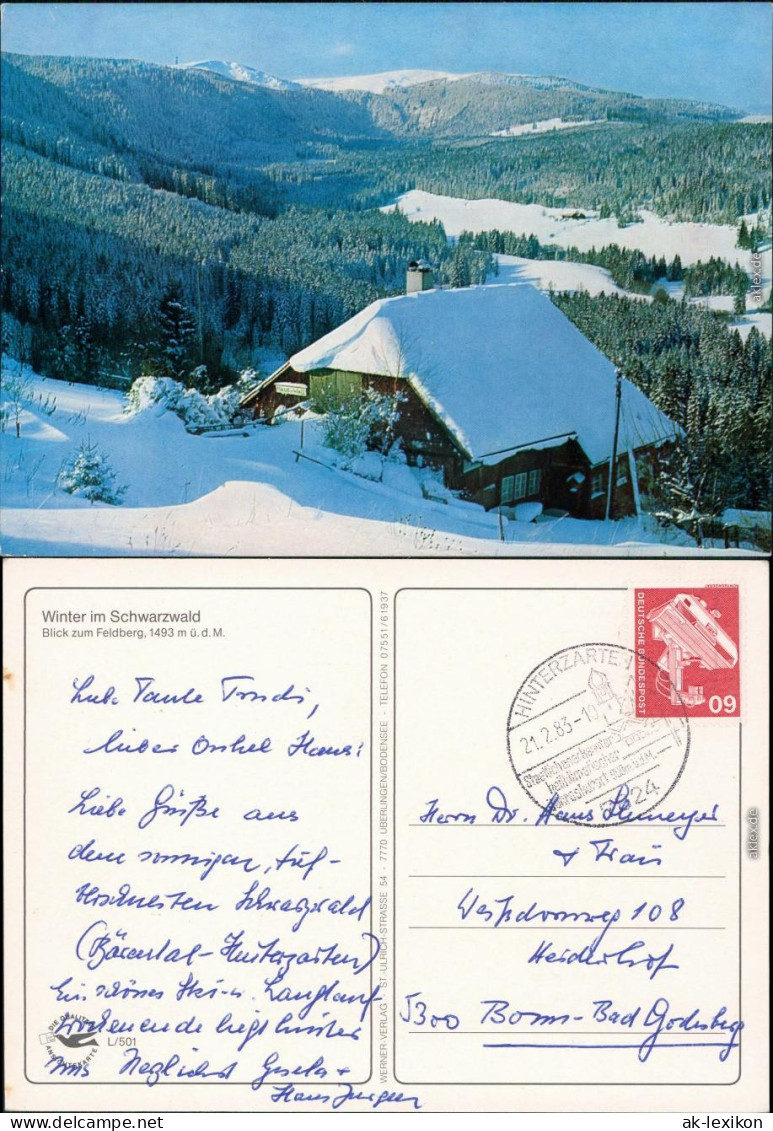 aklex.de
Winter im Schwarzwald
Blick zum Feldberg, 1493 m ü. d. M.
Liebe Tante Trudi,
lieber Onkel Hans!
Liebe Grüße aus
dem sonnigen, tief-
verschneiten Schwarzwald
(Bärental-Hinterzarten)
Ein schönes Ski- u. Langlauf
wochenende liegt hinter
uns Herzlichst Gisela +
Hans Jürgen
DIE QUALITÄTS
ANSICHTSKARTE
L/501
WERNER-VERLAG · ST.-ULRICH-STRASSE 54 · 7770 ÜBERLINGEN/BODENSEE · TELEFON 07551/61937
DEUTSCHE BUNDESPOST
60
HINTERZARTEN
21.2.83-10
Staatlich anerkannter
heilklimatischer
Kurort
7824
Herrn Dr. Hans
+ Frau
108
Heiderhof
5300 Bonn-Bad Godesberg
aklex.de
ak-lexikon